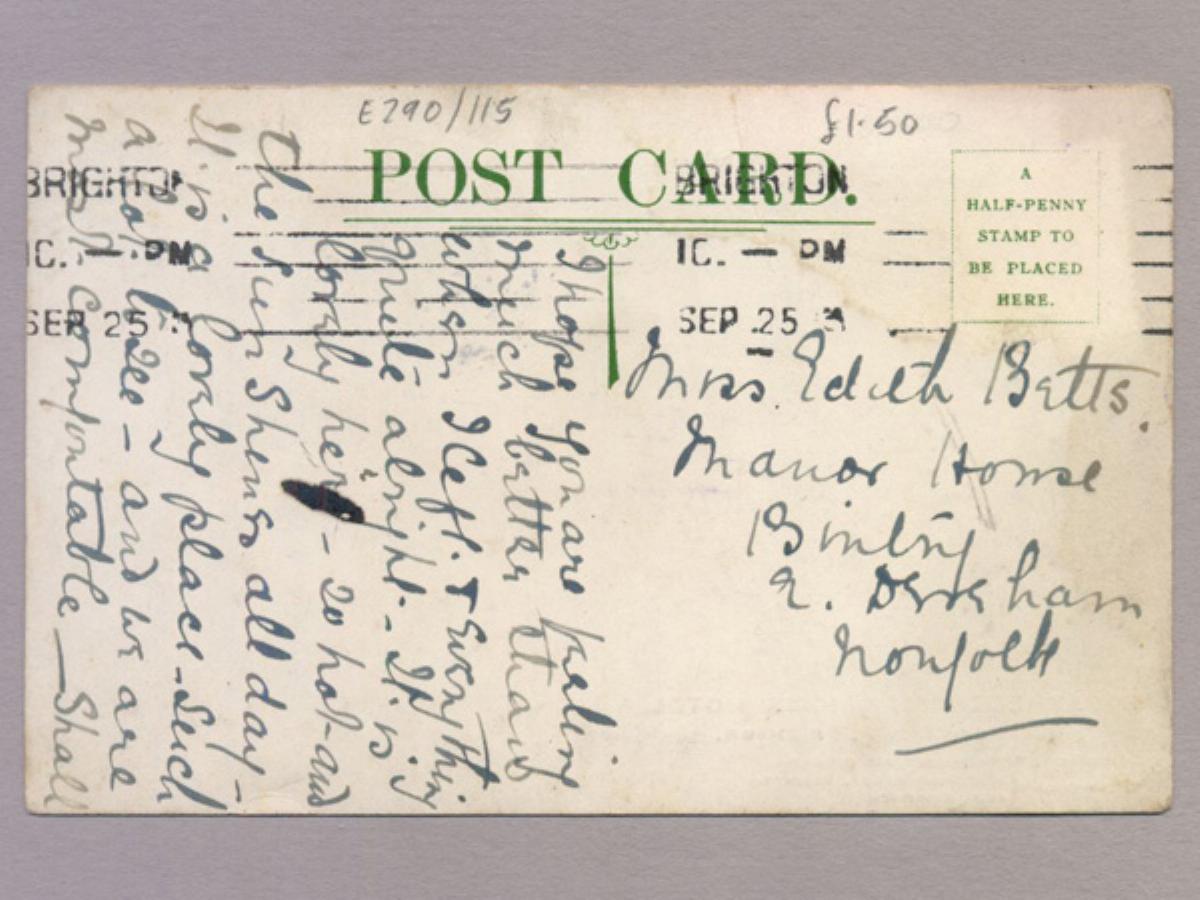 E290/115
£1.50
POST CARD.
BRIGHTON
BRIGHTON
A
HALF-PENNY
STAMP TO
BE PLACED
HERE.
- PM
- PM
SEP 25
SEP 25
I hope you are feeling
much better than
when I left & Everything
quite alright - It is
lovely here - so hot - and
the sun Shines all day -
It is a lovely place - Such
a lot to see - and we are
most comfortable - Shall
Miss Edith Betts.
Manor House
Bintry
E. Dereham
Norfolk